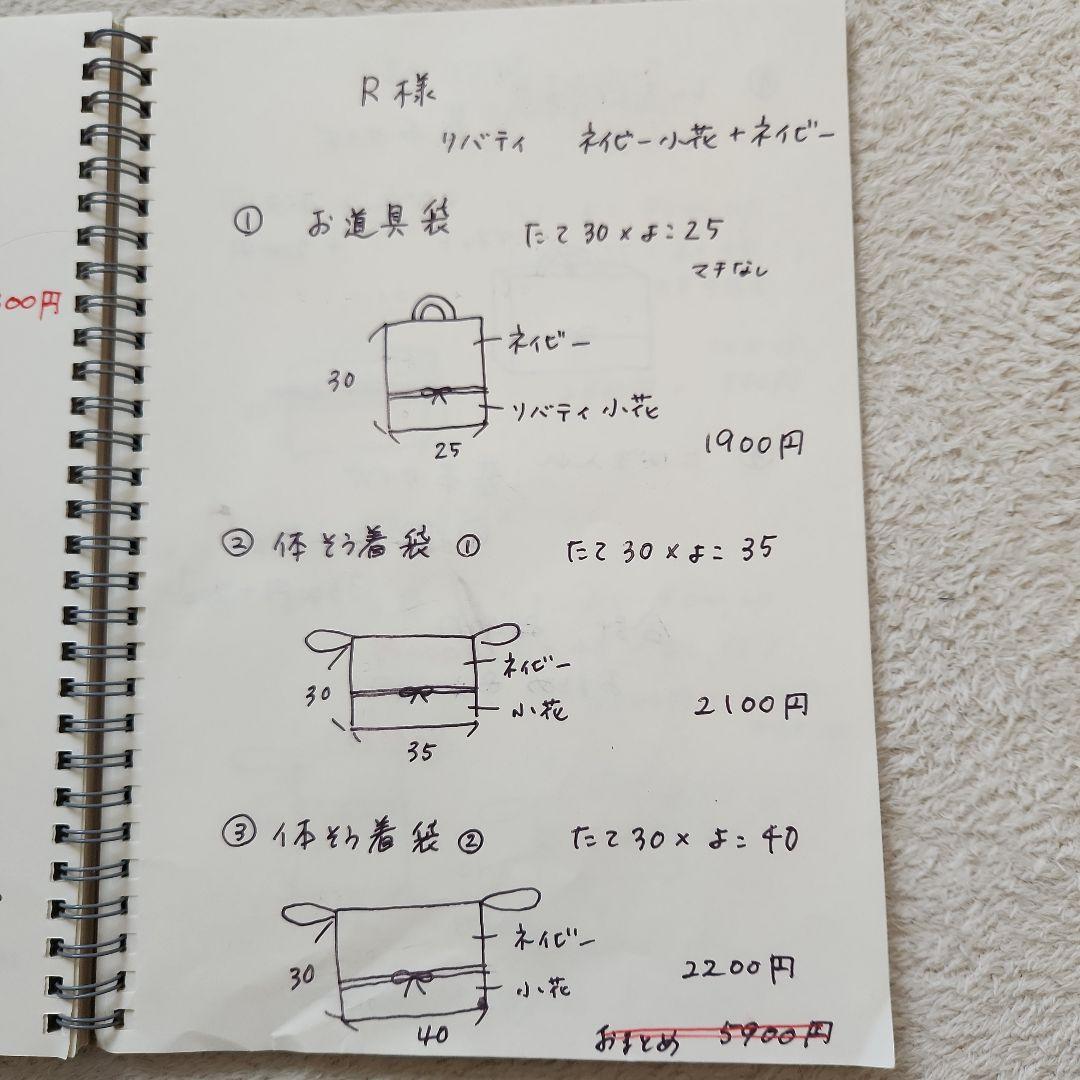 R様
リバティ ネイビー小花+ネイビー
① お道具袋 たて30×よこ25
マチなし
00円
ネイビー
30
リバティ小花
25
1900円
② 体そう着袋① たて30×よこ35
ネイビー
30
小花
2100円
35
③ 体そう着袋② たて30×よこ40
ネイビー
30
小花
2200円
40
おまとめ 5900円